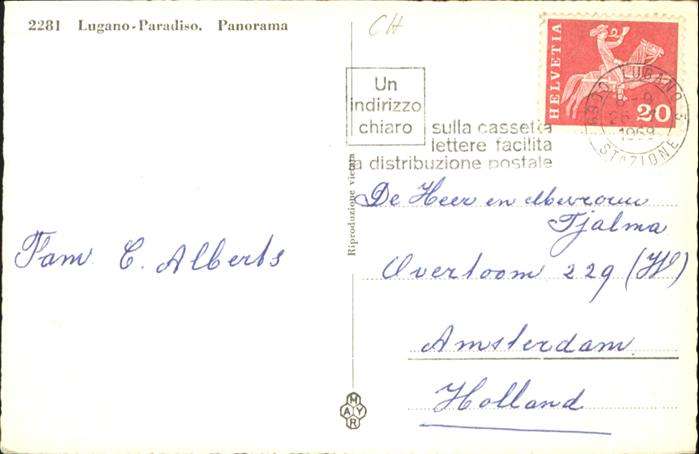 2281 Lugano-Paradiso. Panorama
CH
HELVETIA
20
6900 LUGANO 5
1968
STAZIONE
Un
indirizzo
chiaro
sulla cassetta
lettere facilita
la distribuzione postale
Riproduzione vietata
Fam C. Alberts
De Heer en Mevrouw
Tjalma
Overtoom 229 (W)
Amsterdam
Holland
MAYR